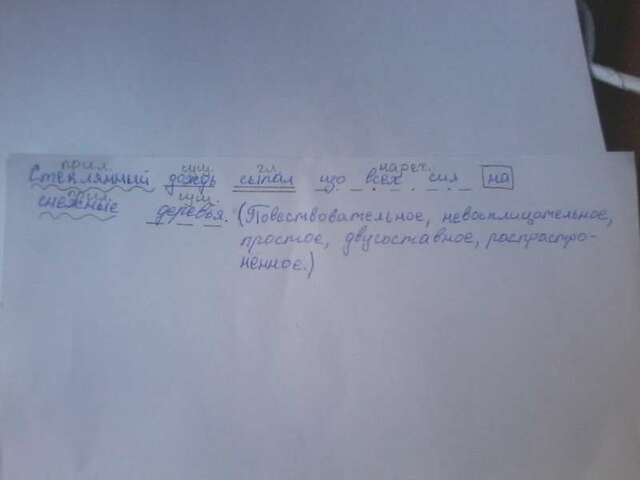 прил. сущ. гл. нареч.
Стеклянный дождь сыпал изо всех сил на
прил. сущ.
снежные деревья. (Повествовательное, невосклицательное,
простое, двусоставное, распростро-
нённое.)